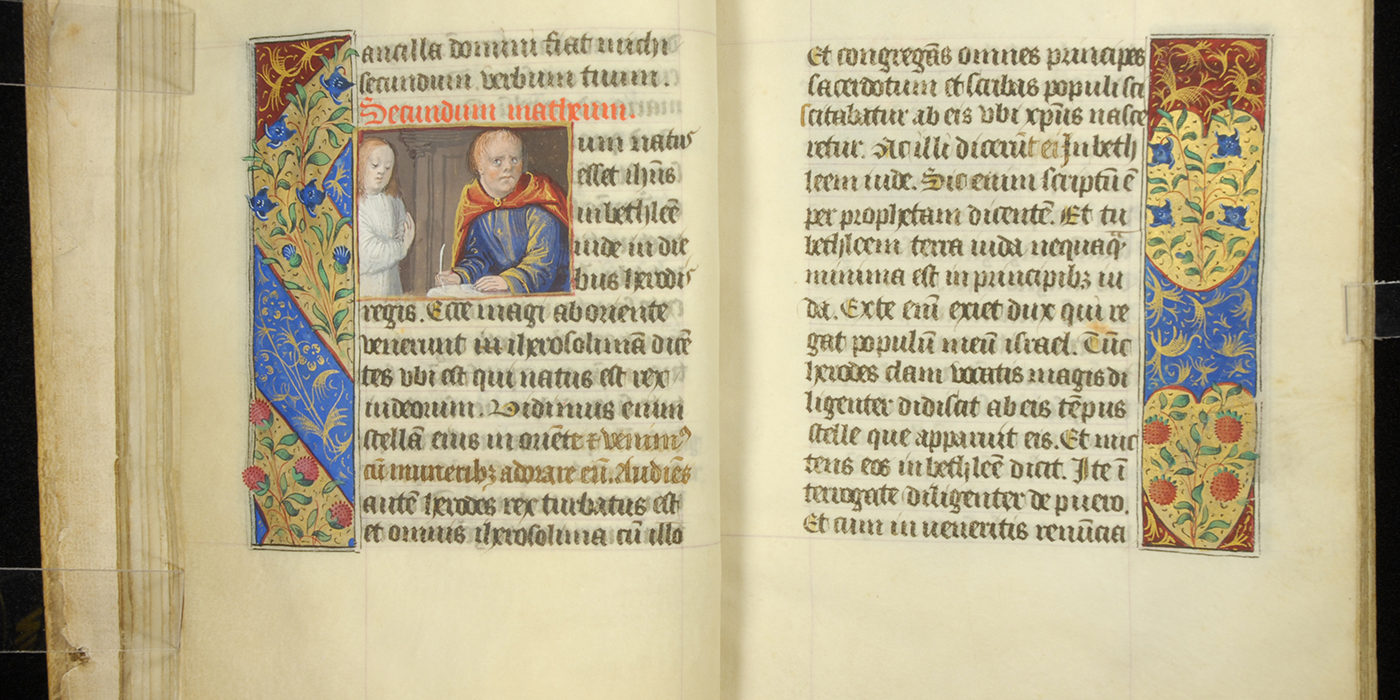 ancilla dom̄ini fiat michi
secundum verbum tuum.
Secundum matheum.
um natus
esset ih̄us
in bethleē
iude in die
bus herodis
regis. Ecce magi ab oriente
venerunt in iherosolimā dicē
tes vbi est qui natus est rex
iudeorum. Vidimus enim
stellā eius in oriēte ⁊ venimꝰ
cū muneribꝫ adorare eū. Audiēs
autē herodes rex turbatus est
et omnis iherosolima cū illo
Et congregās omnes principes
sacerdotum et scribas populi sci
scitabatur ab eis vbi xp̄us nasce
retur. At illi dixerūt ei In beth
leem iude. Sic enim scriptū ē
per prophetam dicentē. Et tu
bethleem terra iuda nequaqͣ
minima est in principibꝫ iu
da. Ex te eim̄ exiet dux qui re
gat populū meū israel. Tūc
herodes clam vocatis magis di
ligenter didiscit ab eis tēpus
stelle que apparuit eis. Et mic
tens eos in bethleē dicit. Ite ī
terrogate diligenter de puero.
Et cum in ueneritis renūcia